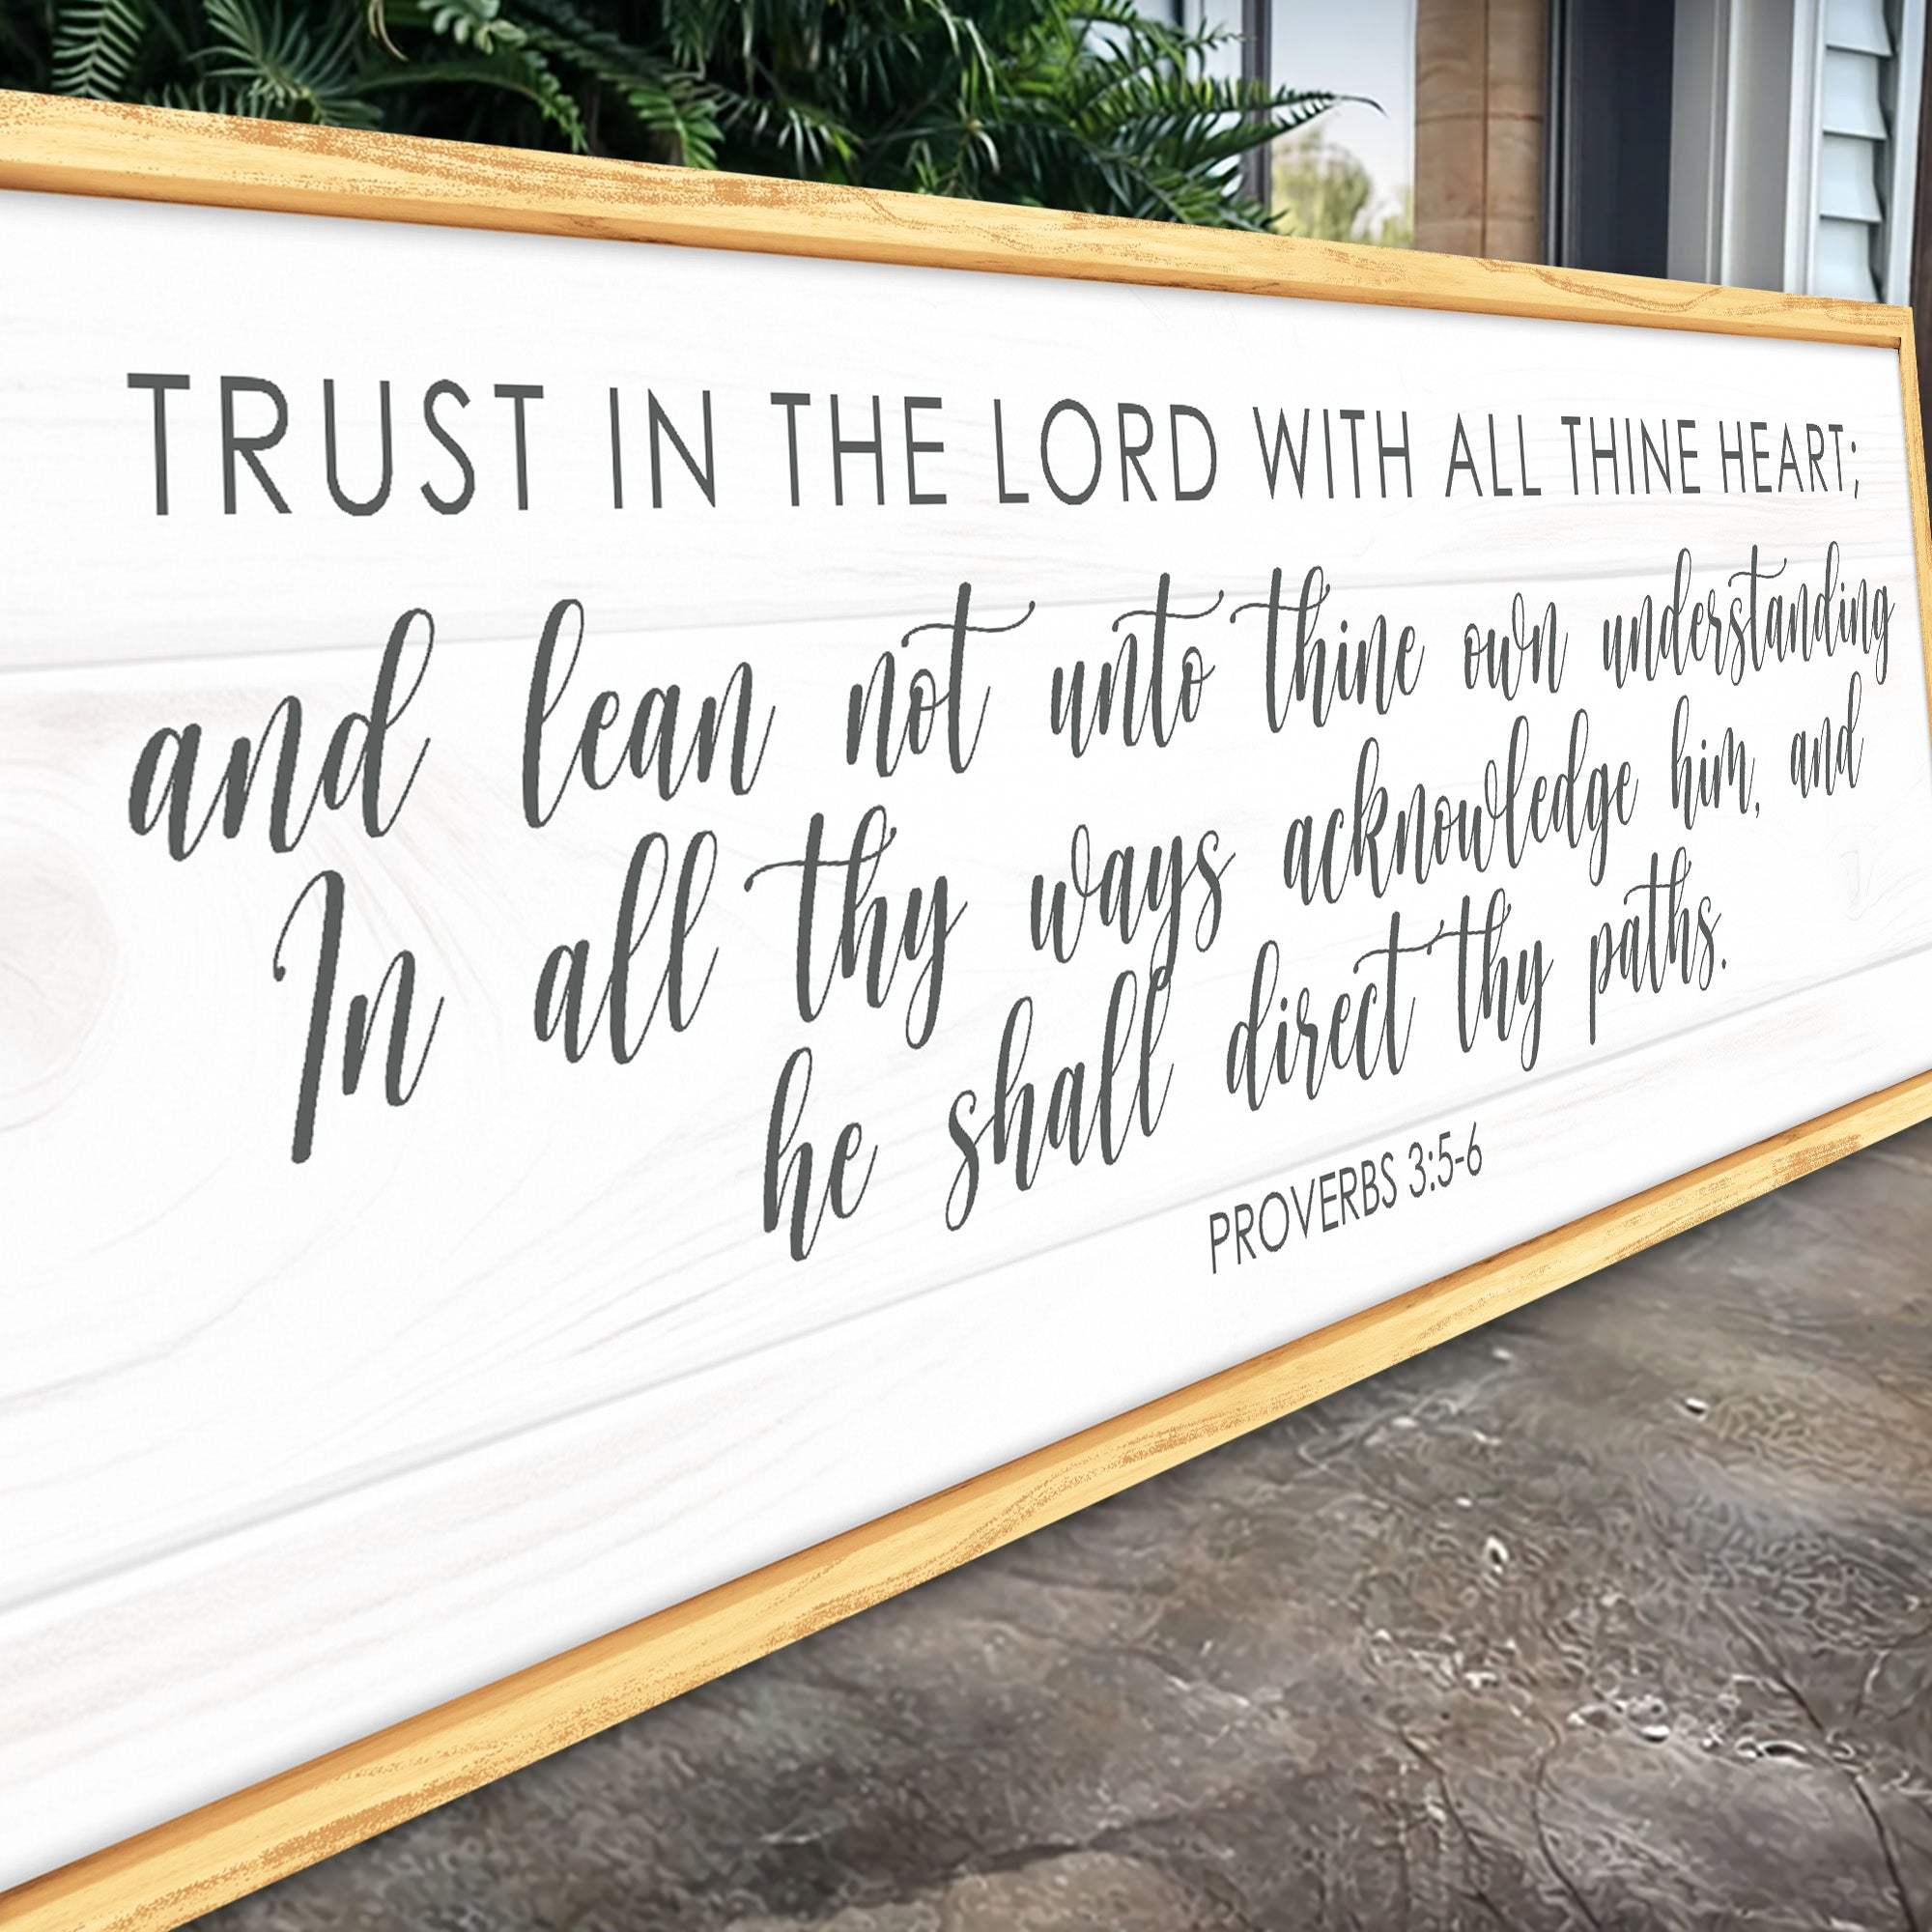 TRUST IN THE LORD WITH ALL THINE HEART;
and lean not unto thine own understanding
In all thy ways acknowledge him, and
he shall direct thy paths.
PROVERBS 3:5-6